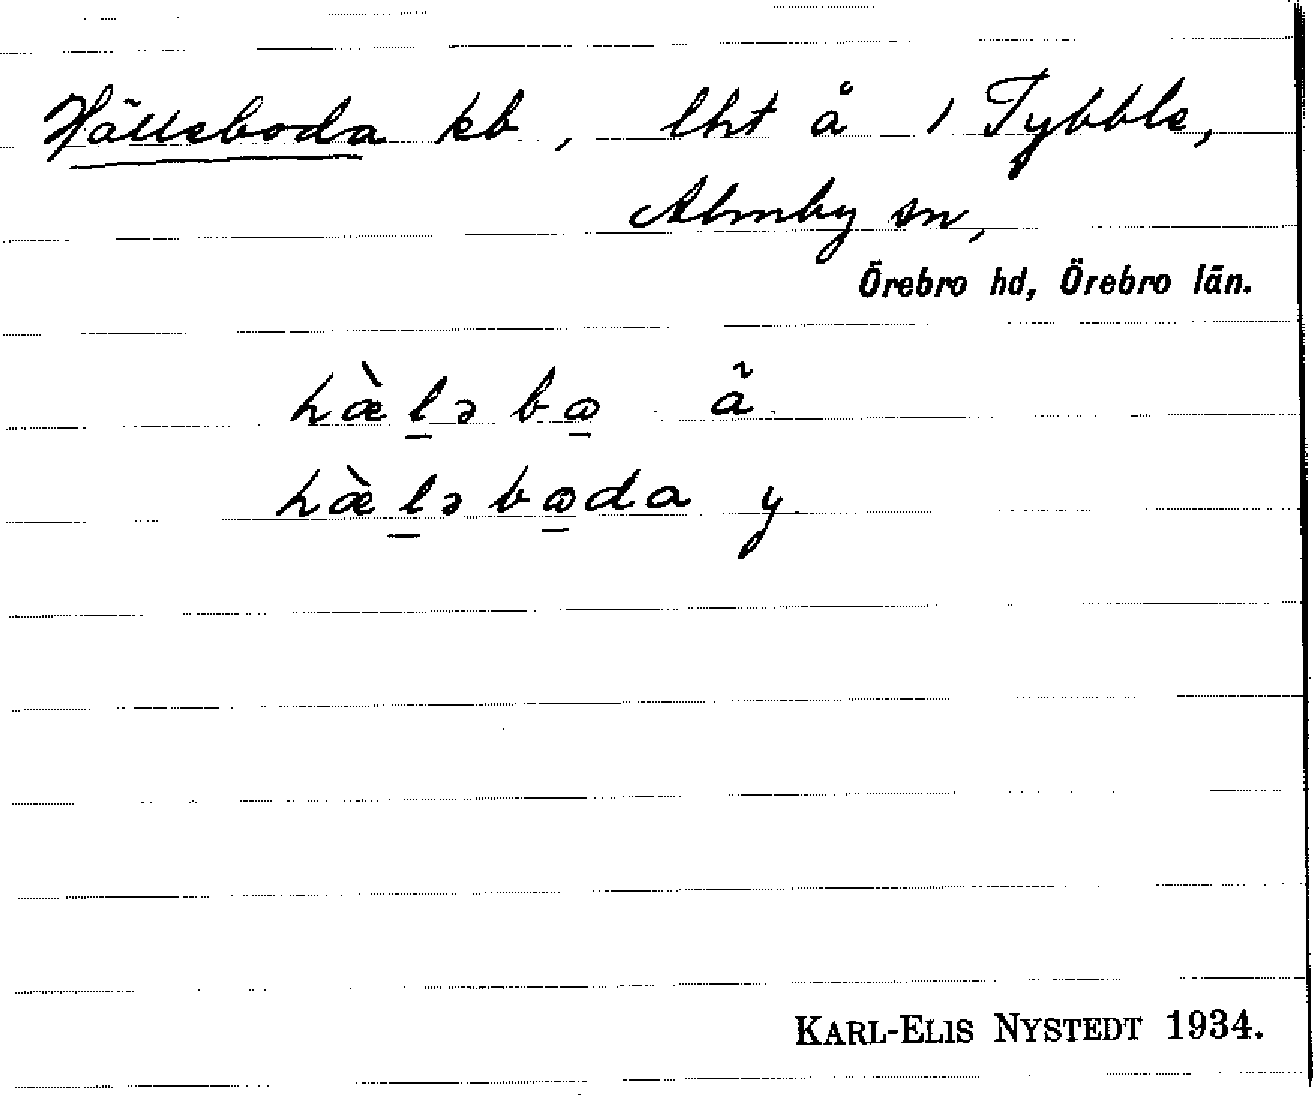 Hälleboda kb, lht å 1 Tybble,
Almby sn,
Örebro hd, Örebro län.
hæ̀l̠ə bɷ̠ ã
hæ̀l̠ə bɷ̠da y.
KARL-ELIS NYSTEDT 1934.